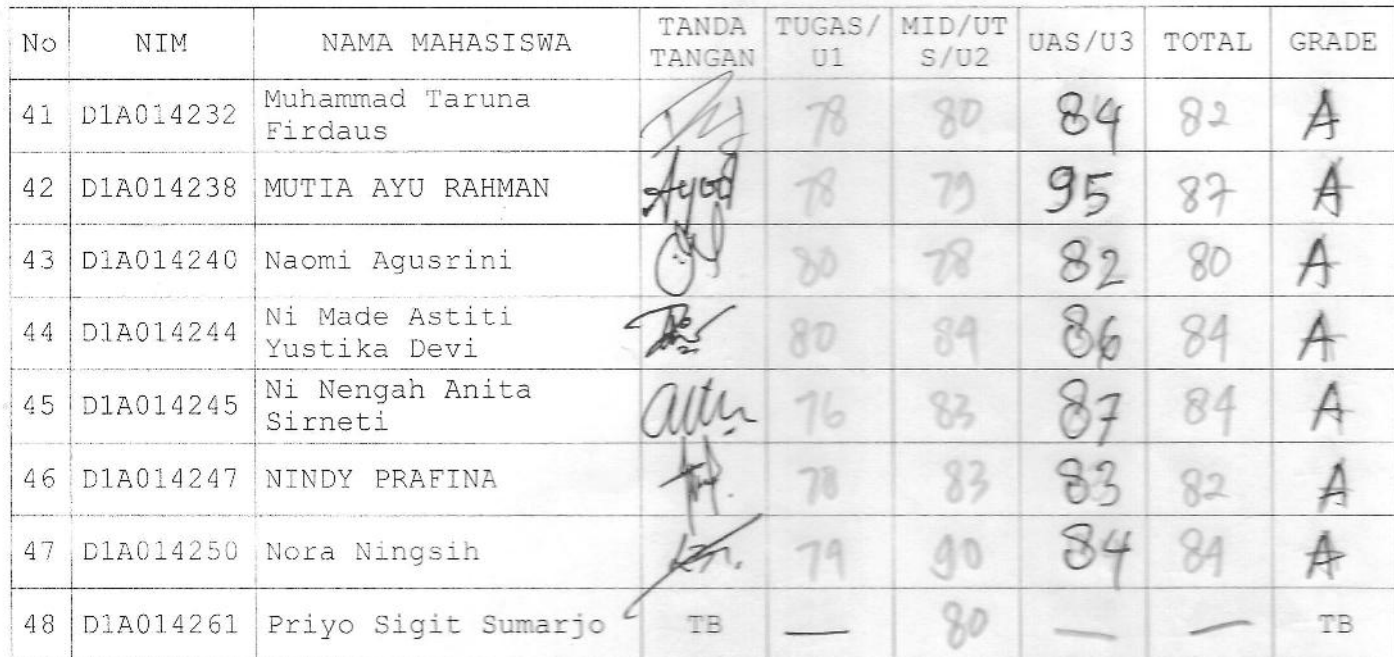 No NIM NAMA MAHASISWA TANDA TANGAN TUGAS/U1 MID/UTS/U2 UAS/U3 TOTAL GRADE
41 D1A014232 Muhammad Taruna Firdaus 78 80 84 82 A
42 D1A014238 MUTIA AYU RAHMAN Ayod 78 79 95 87 A
43 D1A014240 Naomi Agusrini 80 78 82 80 A
44 D1A014244 Ni Made Astiti Yustika Devi 80 84 86 84 A
45 D1A014245 Ni Nengah Anita Sirneti 76 83 87 84 A
46 D1A014247 NINDY PRAFINA 78 83 83 82 A
47 D1A014250 Nora Ningsih 79 90 84 84 A
48 D1A014261 Priyo Sigit Sumarjo TB — 80 — — TB